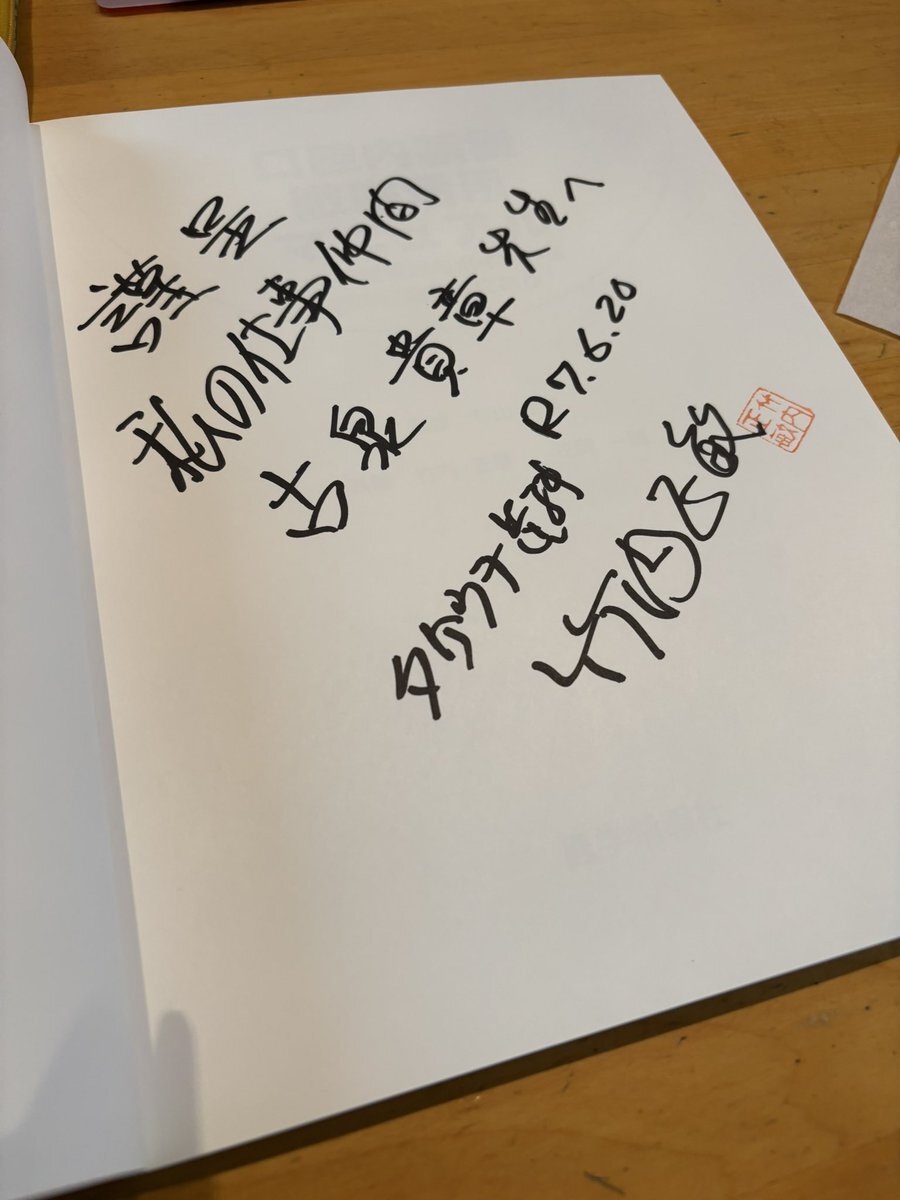 謹呈
私の仕事仲間
古泉 貴章 先生へ
R7.6.20
竹内正敏
竹内
正敏